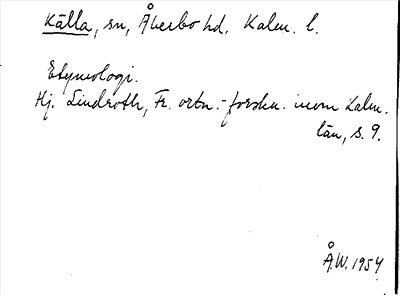 Källa, sn, Åkerbo hd. Kalm. l.
Etymologi.
Hj. Lindroth, Fr. ortn.-forskn. inom Kalm.
län, s. 9.
Å.W. 1954